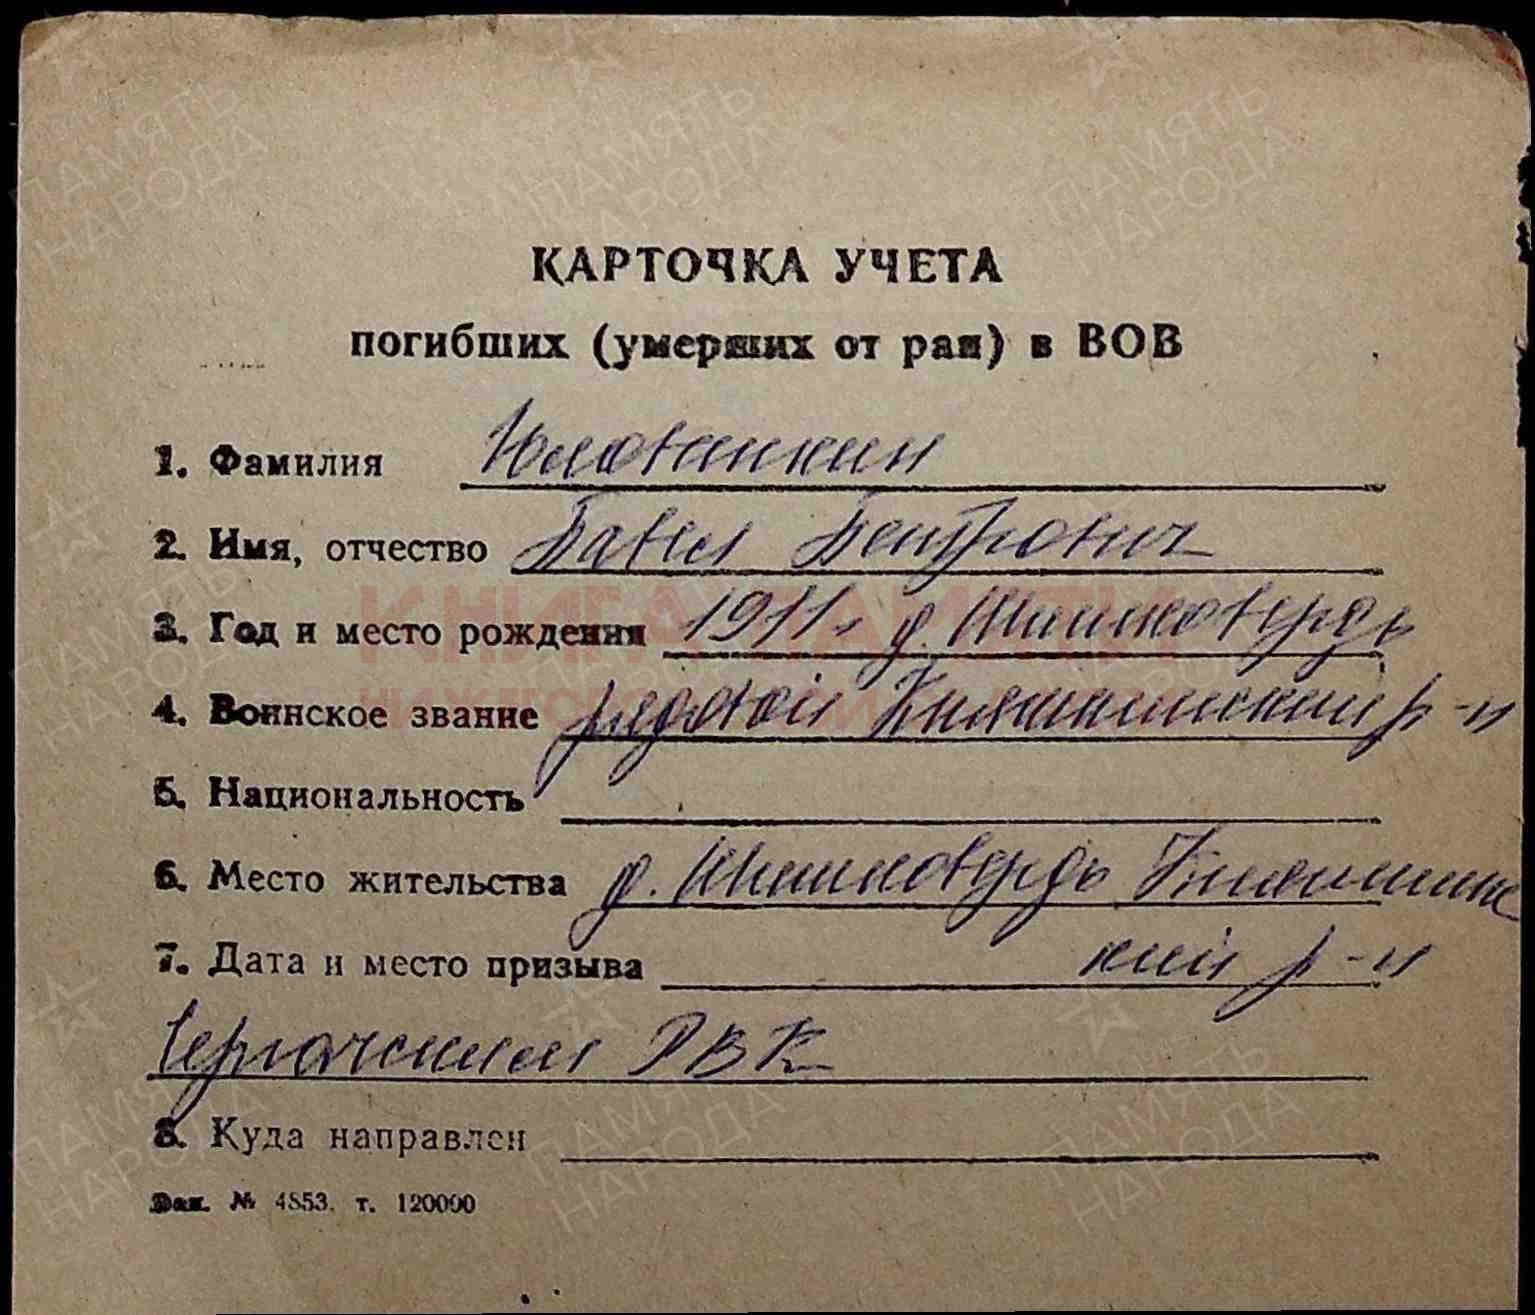 КАРТОЧКА УЧЕТА
погибших (умерших от ран) в ВОВ
1. Фамилия Юловаткин
2. Имя, отчество Павел Петрович
3. Год и место рождения 1911г д. Шишковердь
4. Воинское звание рядовой Княгининский р-н
5. Национальность
6. Место жительства д. Шишковердь Княгининс
7. Дата и место призыва кий р-н
Сергачским РВК
8. Куда направлен
Зак. № 4853. т. 120000
КНИГА ПАМЯТИ
ПАМЯТЬ НАРОДА